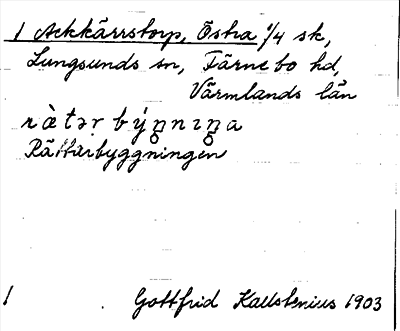 1 Ackkärrstorp, Östra 1/4 sk,
Lungsunds sn, Färnebo hd,
Värmlands län
Rättarbyggningen
1 Gottfrid Kallstenius 1903